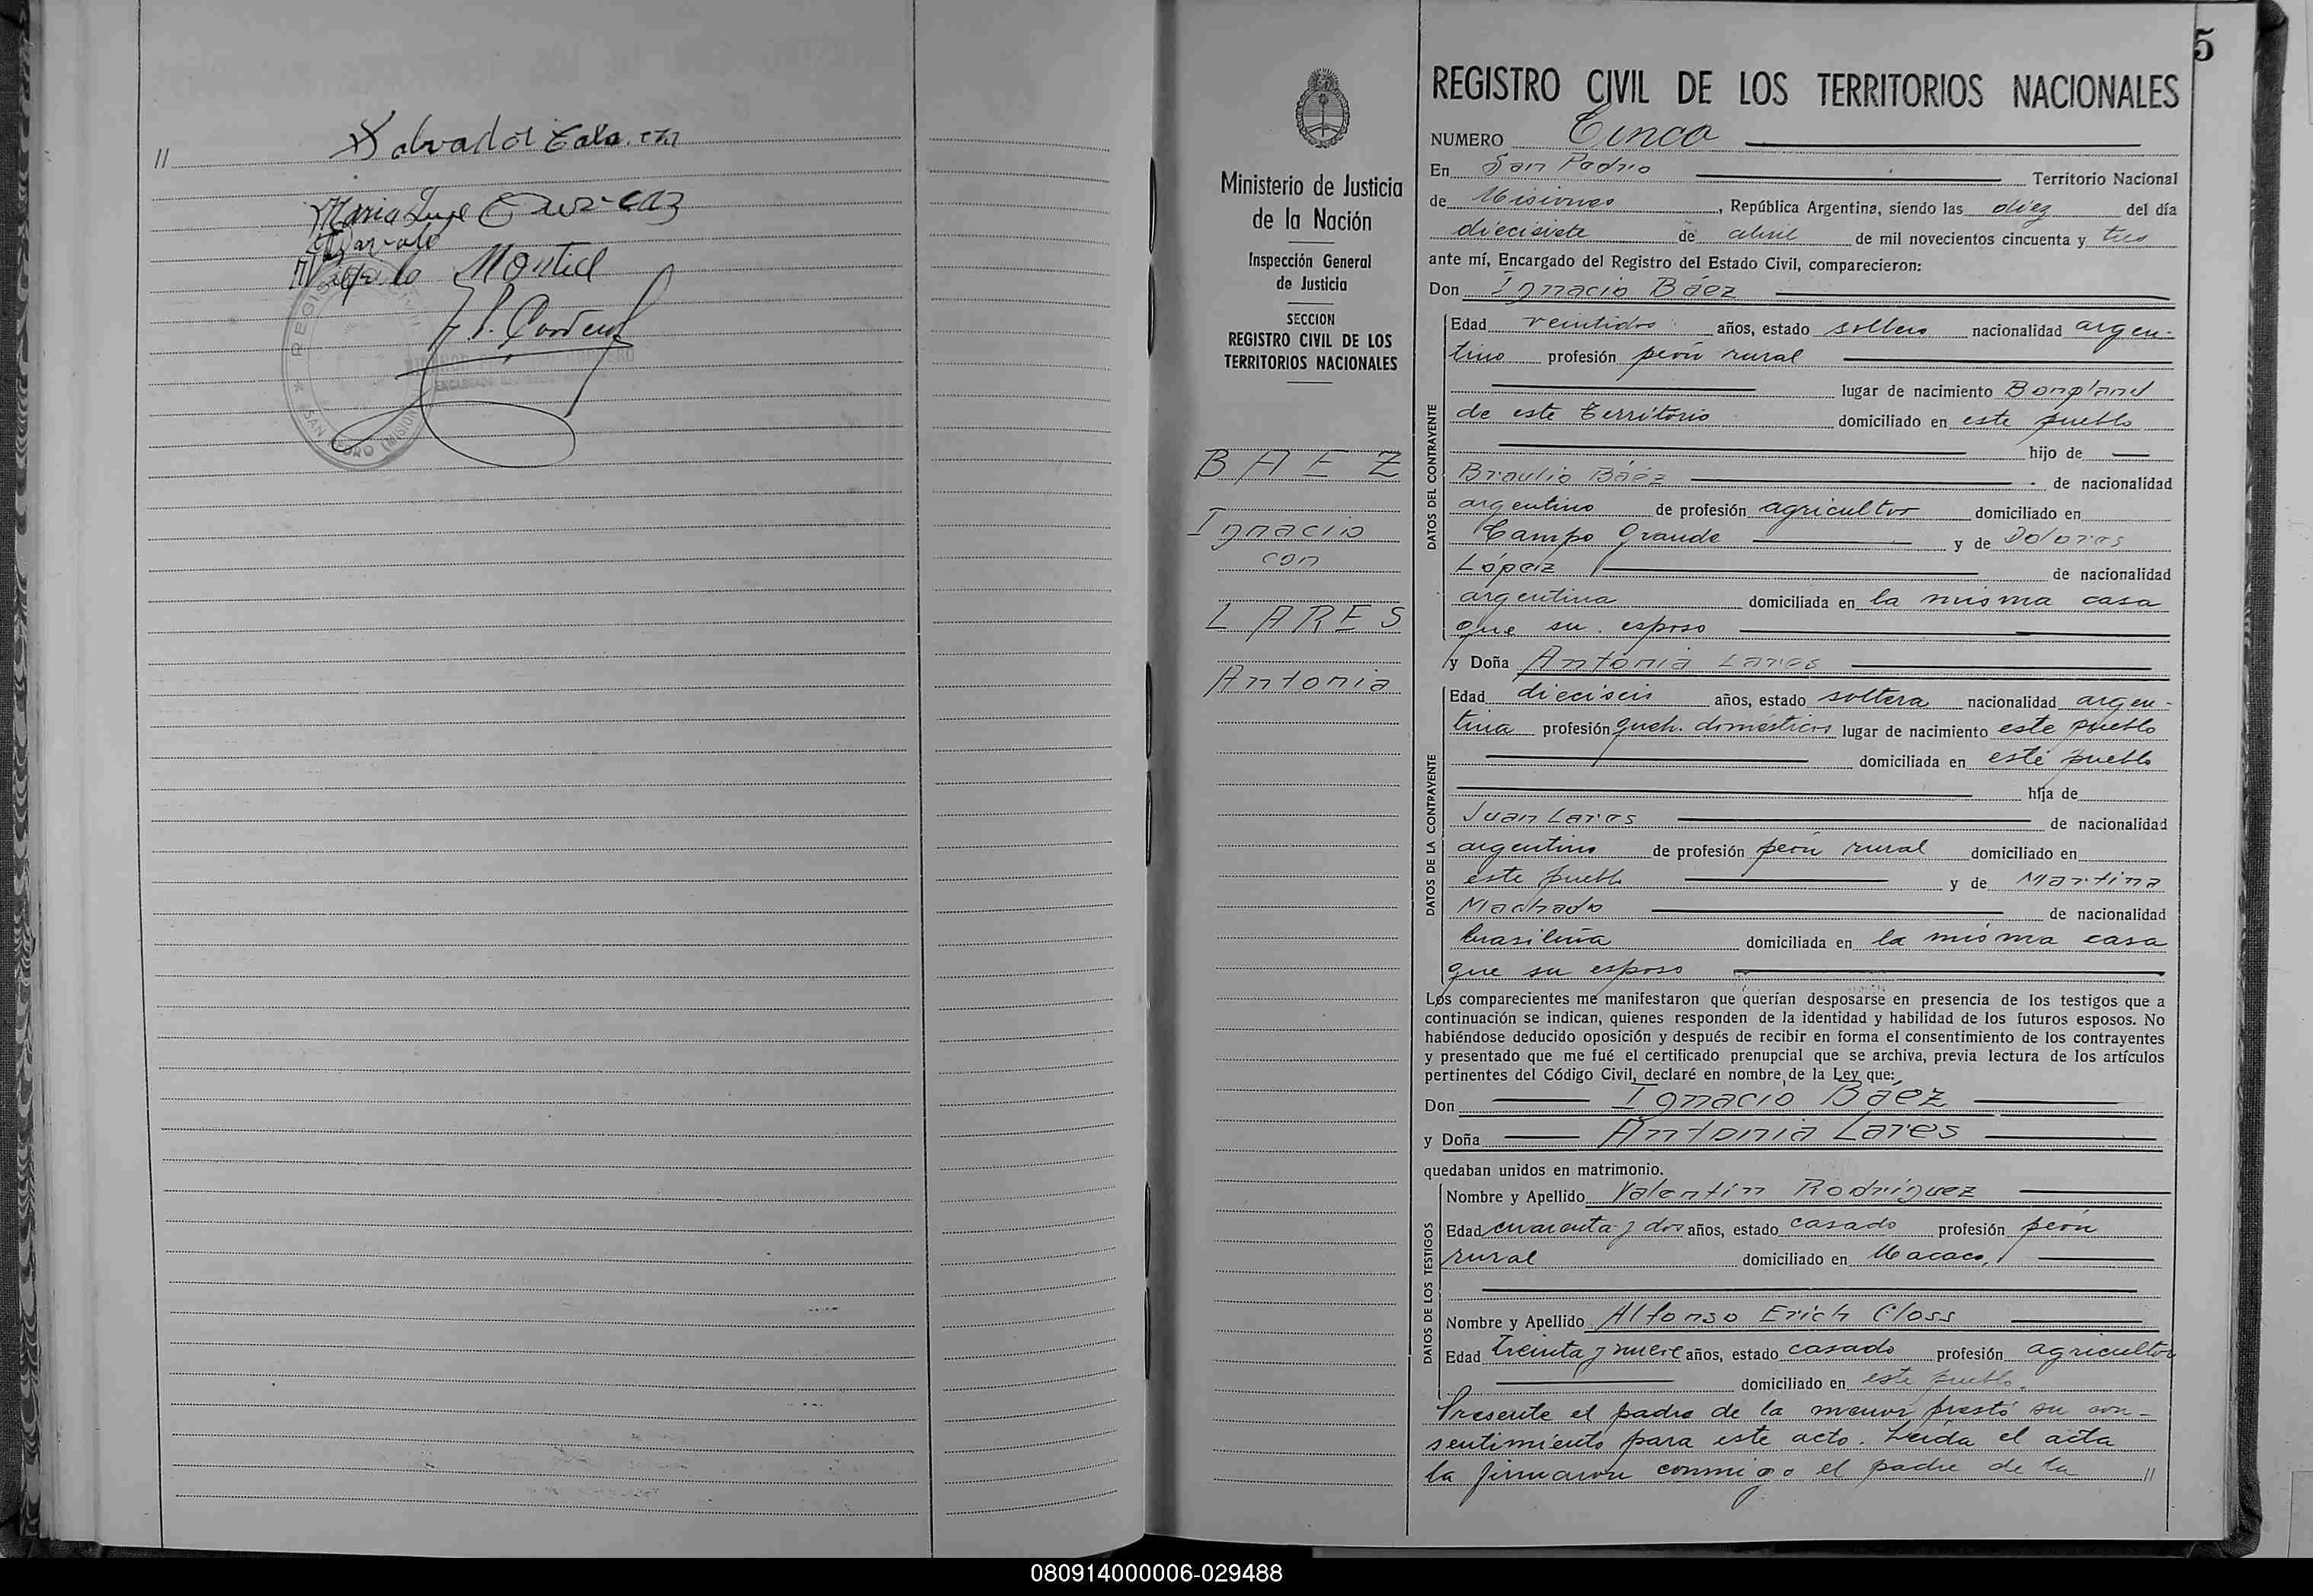 //
Salvador
Maria
Montiel
REGIS
SAN PEDRO (MISIO
5
Ministerio de Justicia
de la Nación
Inspección General
de Justicia
SECCION
REGISTRO CIVIL DE LOS
TERRITORIOS NACIONALES
BAEZ
Ignacio
con
LARES
Antonia
REGISTRO CIVIL DE LOS TERRITORIOS NACIONALES
NUMERO Cinco
En San Pedro Territorio Nacional
de Misiones, República Argentina, siendo las diez del día
diecisiete de abril de mil novecientos cincuenta y tres
ante mí, Encargado del Registro del Estado Civil, comparecieron:
Don Ignacio Báez
DATOS DEL CONTRAYENTE
Edad veintidos años, estado soltero nacionalidad argen-
tino profesión peón rural
lugar de nacimiento Bonpland
de este Territorio domiciliado en este pueblo
hijo de
Braulio Báez de nacionalidad
argentino de profesión agricultor domiciliado en
Campo Grande y de Dolores
López de nacionalidad
argentina domiciliada en la misma casa
que su esposo
y Doña Antonia Lares
DATOS DE LA CONTRAYENTE
Edad dieciseis años, estado soltera nacionalidad argen-
tina profesión queh. domésticos lugar de nacimiento este pueblo
domiciliada en este pueblo
hija de
Juan Lares de nacionalidad
argentino de profesión peón rural domiciliado en
este pueblo y de Martina
Machado de nacionalidad
brasileña domiciliada en la misma casa
que su esposo
Los comparecientes me manifestaron que querían desposarse en presencia de los testigos que a
continuación se indican, quienes responden de la identidad y habilidad de los futuros esposos. No
habiéndose deducido oposición y después de recibir en forma el consentimiento de los contrayentes
y presentado que me fué el certificado prenupcial que se archiva, previa lectura de los artículos
pertinentes del Código Civil, declaré en nombre de la Ley que:
Don Ignacio Báez
y Doña Antonia Lares
quedaban unidos en matrimonio.
DATOS DE LOS TESTIGOS
Nombre y Apellido Valentín Rodríguez
Edad cuarenta y dos años, estado casado profesión peón
rural domiciliado en Macaco,
Nombre y Apellido Alfonso Erich Closs
Edad treinta y nueve años, estado casado profesión agricultor
domiciliado en este pueblo.
Presente el padre de la menor prestó su con-
sentimiento para este acto. Leída el acta
la firmaron conmigo el padre de la //
080914000006-029488